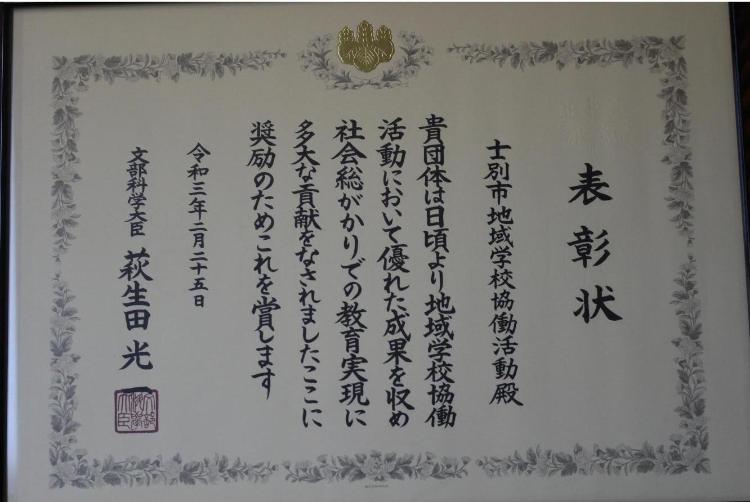 表彰状
士別市地域学校協働活動殿
貴団体は日頃より地域学校協働
活動において優れた成果を収め
社会総がかりでの教育実現に
多大な貢献をなされましたここに
奨励のためこれを賞します
令和三年二月二十五日
文部科学大臣 萩生田光一